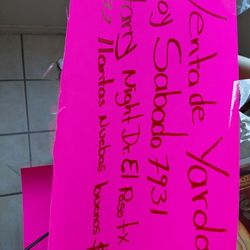 Venta de Yarda
oy Sabado 7931
tarry Night Dr El Paso tx
llantas Nuebas buenos